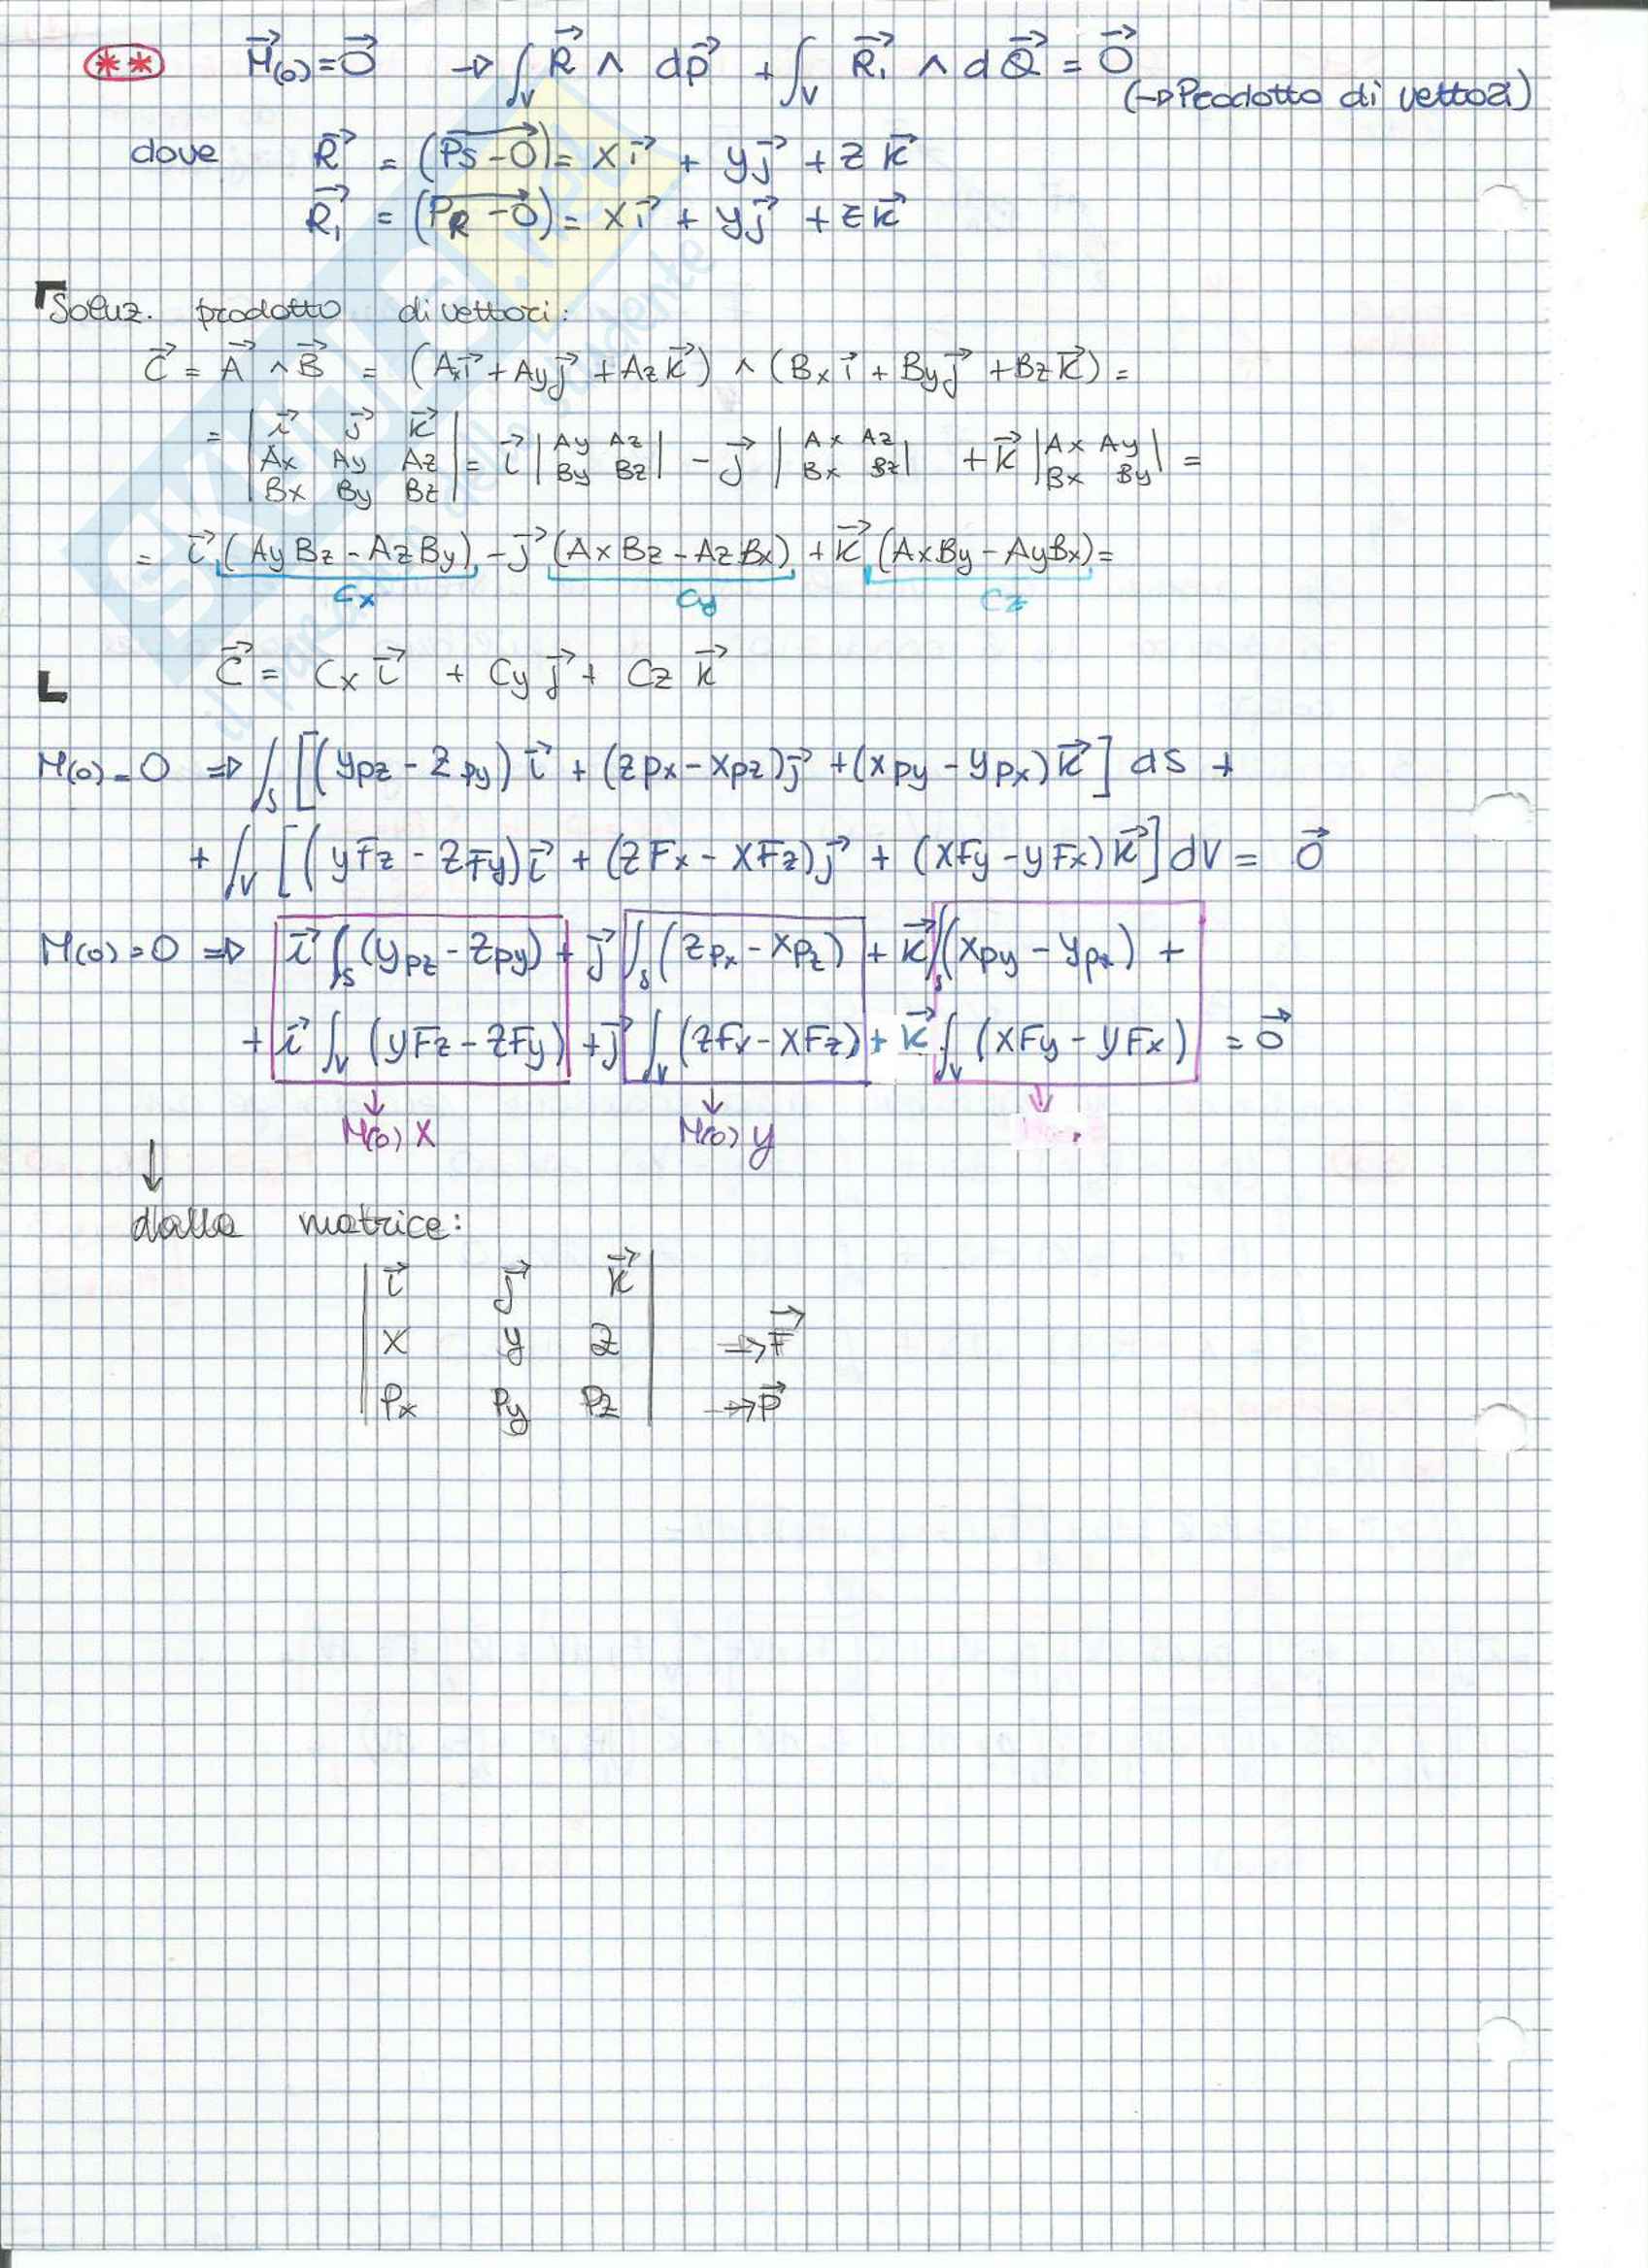 ** M⃗(o) = 0⃗ → ∫V R⃗ ∧ dp⃗ + ∫V R⃗1 ∧ dQ⃗ = 0⃗
(→ Prodotto di vettori)
dove R⃗ = (Ps - O) = x i⃗ + y j⃗ + z k⃗
R⃗1 = (PR - O) = x i⃗ + y j⃗ + z k⃗
Soluz. prodotto di vettori:
C⃗ = A⃗ ∧ B⃗ = (Ax i⃗ + Ay j⃗ + Az k⃗) ∧ (Bx i⃗ + By j⃗ + Bz k⃗) =
= | i⃗ j⃗ k⃗ | Ax Ay Az | Bx By Bz | = i⃗ | Ay Az | By Bz | - j⃗ | Ax Az | Bx Bz | + k⃗ | Ax Ay | Bx By | =
= i⃗ (Ay Bz - Az By) - j⃗ (Ax Bz - Az Bx) + k⃗ (Ax By - Ay Bx) =
Cx Cy Cz
C⃗ = Cx i⃗ + Cy j⃗ + Cz k⃗
M(o) = 0 ⇒ ∫S [(ypz - zpy) i⃗ + (zpx - xpz) j⃗ + (xpy - ypx) k⃗] dS +
+ ∫V [(yFz - zFy) i⃗ + (zFx - xFz) j⃗ + (xFy - yFx) k⃗] dV = 0⃗
M(o) = 0 ⇒ i⃗ ∫S (ypz - zpy) + j⃗ ∫S (zpx - xpz) + k⃗ ∫S (xpy - ypx) +
+ i⃗ ∫V (yFz - zFy) + j⃗ ∫V (zFx - xFz) + k⃗ ∫V (xFy - yFx) = 0⃗
↓ ↓ ↓
M(o) x M(o) y
↓
dalla matrice:
| i⃗ j⃗ k⃗ |
| x y z | → F⃗
| Px Py Pz | → P⃗
SKUOLA.net
il paradiso dello studente